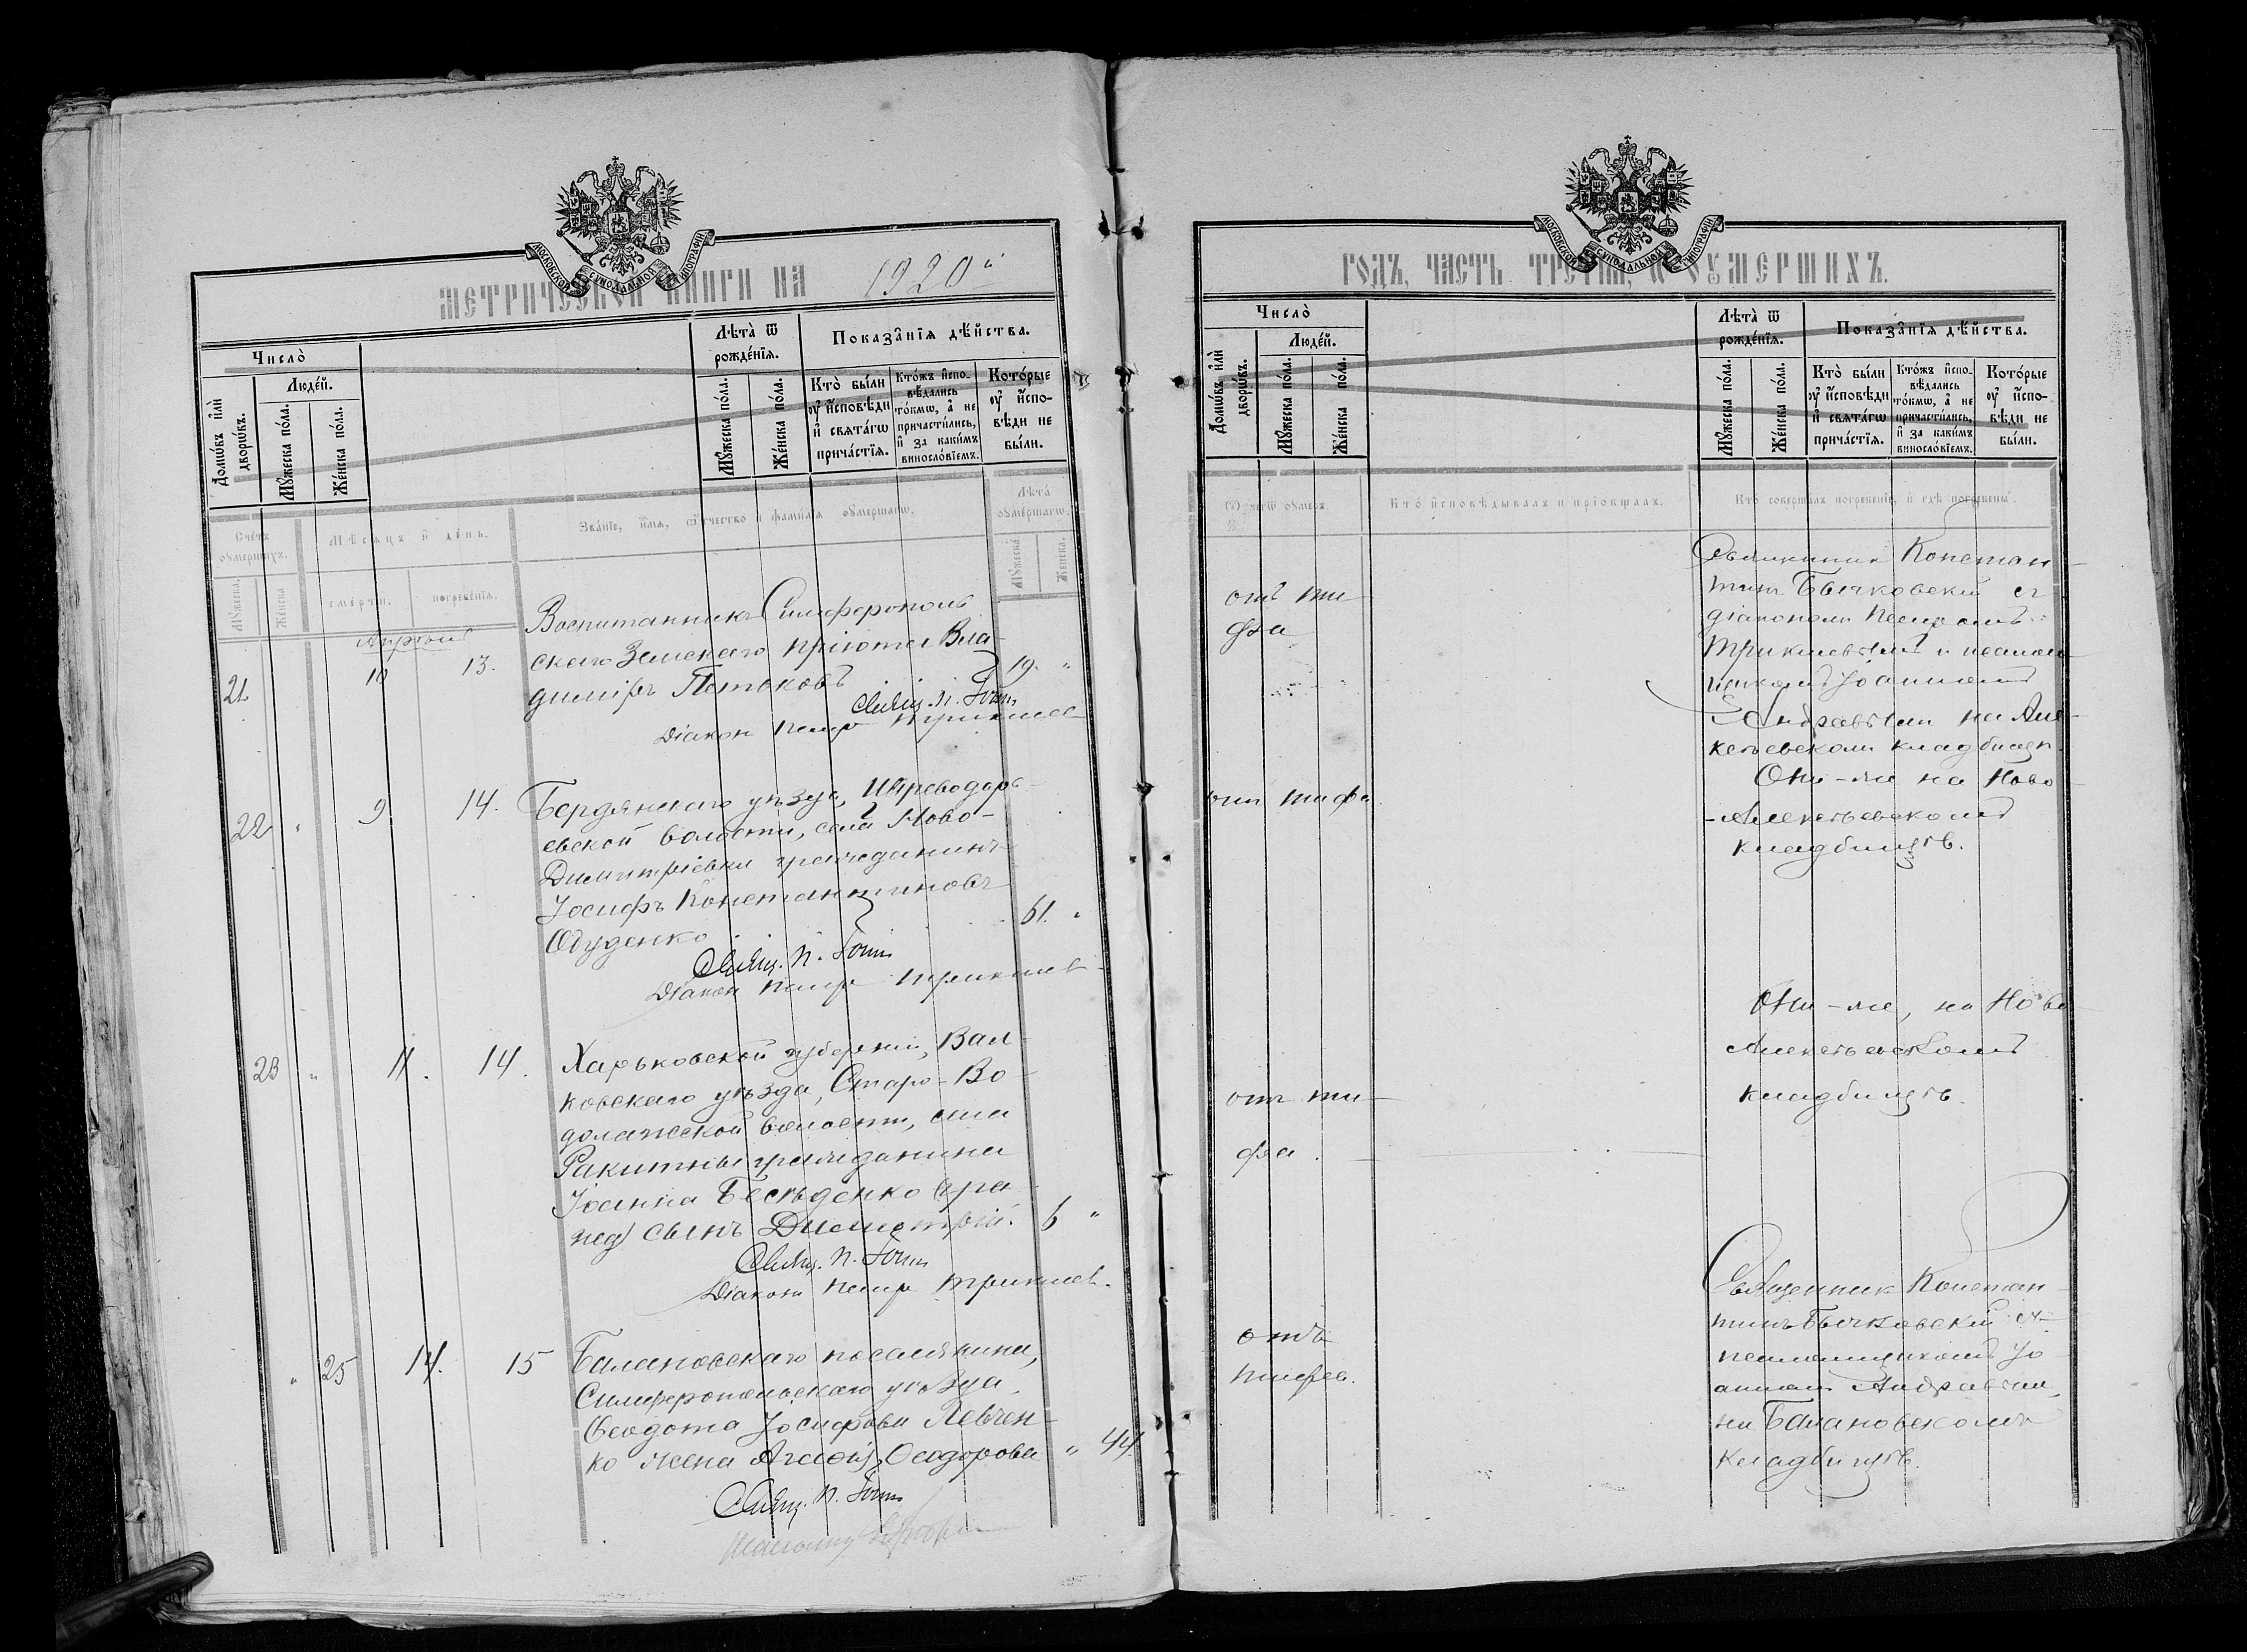 МОСКОВСКОЙ СУНОДАЛЬНОЙ ТИПОГРАФІИ
МЕТРИЧЕСКОЙ КНИГИ НА 1920й
Число̀
Домѡ́въ и҆лѝ дворѡ́въ.
Люде́й.
Мꙋ́жеска по́ла.
Же́нска по́ла.
Лѣта̀ ѿ рожде́нїѧ.
Мꙋ́жеска по́ла.
Же́нска по́ла.
Показа̑нїѧ дѣ́йства.
Кто̀ бы́ли
ᲂу҆ и҆́сповѣди
и҆ свѧта́гѡ
прича́стїѧ.
Кто́жъ и҆спо-
вѣ́дались
то́кмѡ, а҆ не
причасти́лись,
и҆ за каки́мъ
винослѡ́вїемъ.
Кото́рые
ᲂу҆ и҆́спо-
вѣди не
бы́ли.
Сче́тъ ᲂу҆мершихъ.
Мꙋжеска.
Женска
Мѣсѧцъ и҆ де́нь.
сме́рти.
погребе́нїѧ.
Зва́нїе, и҆́мѧ, ѻ҆́тчество и҆ фами́лїѧ ᲂу҆ме́ршагѡ.
Лѣта̀ ᲂу҆ме́ршагѡ.
Мꙋжеска
Женска.
Апрѣль
21 10 13.
Воспитанникъ Симферополь
скаго Земскаго пріюта Вла-
диміръ Петьковъ 19. "
Свящ. П.
Діаконъ Петръ
22 " 9 14.
Бердянскаго уѣзда,
евской волости, села Ново-
Димитріевки гражданинъ
Іосифъ Константиновъ
Одуденко 61. "
Свящ. П.
Діаконъ Петръ
23 " 11. 14.
Харьковской губерніи, Вал-
ковскаго уѣзда, Старо-Во-
долажской волости, села
Ракитны гражданина
Іоанна Бесѣденко
сынъ Димитрій. 6 "
Свящ. П.
Діаконъ Петръ
" 25 14. 15
Балановскаго поселянина,
Симферопольскаго уѣзда
Ѳеодота Іосифова Левчен-
ко жена Агаѳія Ѳеодорова " 44.
Свящ. П.
МОСКОВСКОЙ СУНОДАЛЬНОЙ ТИПОГРАФІИ
ГОДЪ, ЧАСТЬ ТРЕТІЯ, Ѡ ОУМЕРШИХЪ.
Число̀
Домѡ́въ и҆лѝ дворѡ́въ.
Люде́й.
Мꙋ́жеска по́ла.
Же́нска по́ла.
Лѣта̀ ѿ рожде́нїѧ.
Мꙋ́жеска по́ла.
Же́нска по́ла.
Показа̑нїѧ дѣ́йства.
Кто̀ бы́ли
ᲂу҆ и҆́сповѣди
и҆ свѧта́гѡ
прича́стїѧ.
Кто́жъ и҆спо-
вѣ́дались
то́кмѡ, а҆ не
причасти́лись,
и҆ за каки́мъ
винослѡ́вїемъ.
Кото́рые
ᲂу҆ и҆́спо-
вѣди не
бы́ли.
Ѿ чегѡ̀ ᲂу҆́меръ.
Кто̀ и҆сповѣ́дывалъ и҆ прїѡбща́лъ.
Кто̀ соверша́лъ погребе́нїе, и҆ гдѣ̀ погребены̀.
отъ ти-
фа
Священникъ Констан-
тинъ Бычковскій съ
діакономъ Петромъ
и псалом-
щикомъ Іоанномъ
на Але-
ксѣевскомъ кладбищѣ.
отъ тифа.
Они-же на Ново
-Алексѣевскомъ
кладбищѣ.
отъ ти-
фа.
Они-же, на Ново
Алексѣевскомъ
кладбищѣ.
отъ
тифа.
Священникъ Констан-
тинъ Бычковскій съ
псаломщикомъ Іо-
анномъ
на Балановскомъ
кладбищѣ.